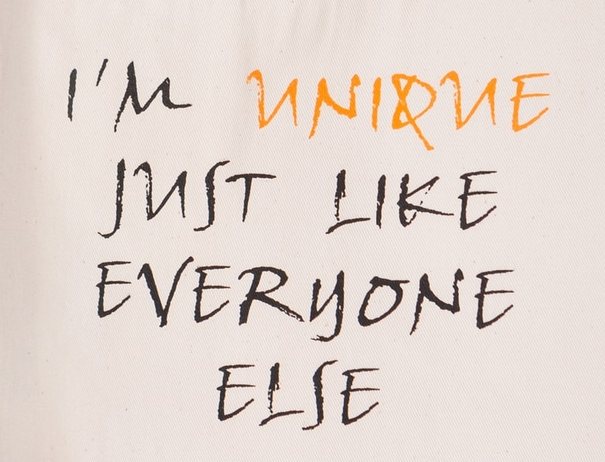 I'M UNIQUE
JUST LIKE
EVERYONE
ELSE